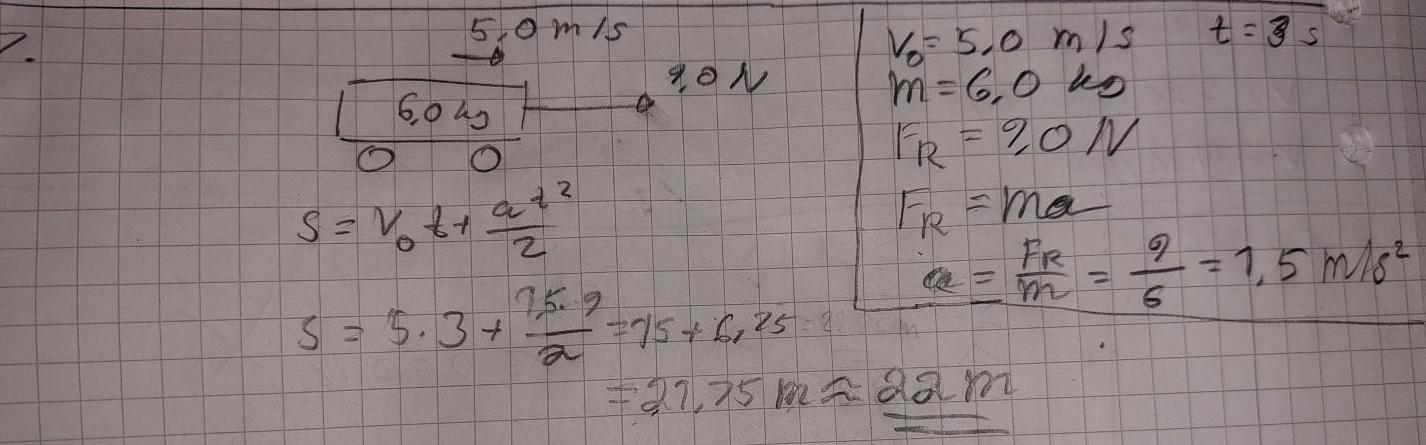 7.
5,0 m/s
6,0 kg
9,0 N
V₀ = 5,0 m/s t = 3 s
m = 6,0 kg
F_R = 9,0 N
F_R = ma
a = F_R/m = 9/6 = 1,5 m/s²
S = V₀ t + at²/2
S = 5 · 3 + 1,5 · 9/2 = 15 + 6,75
= 21,75 m ≈ 22 m